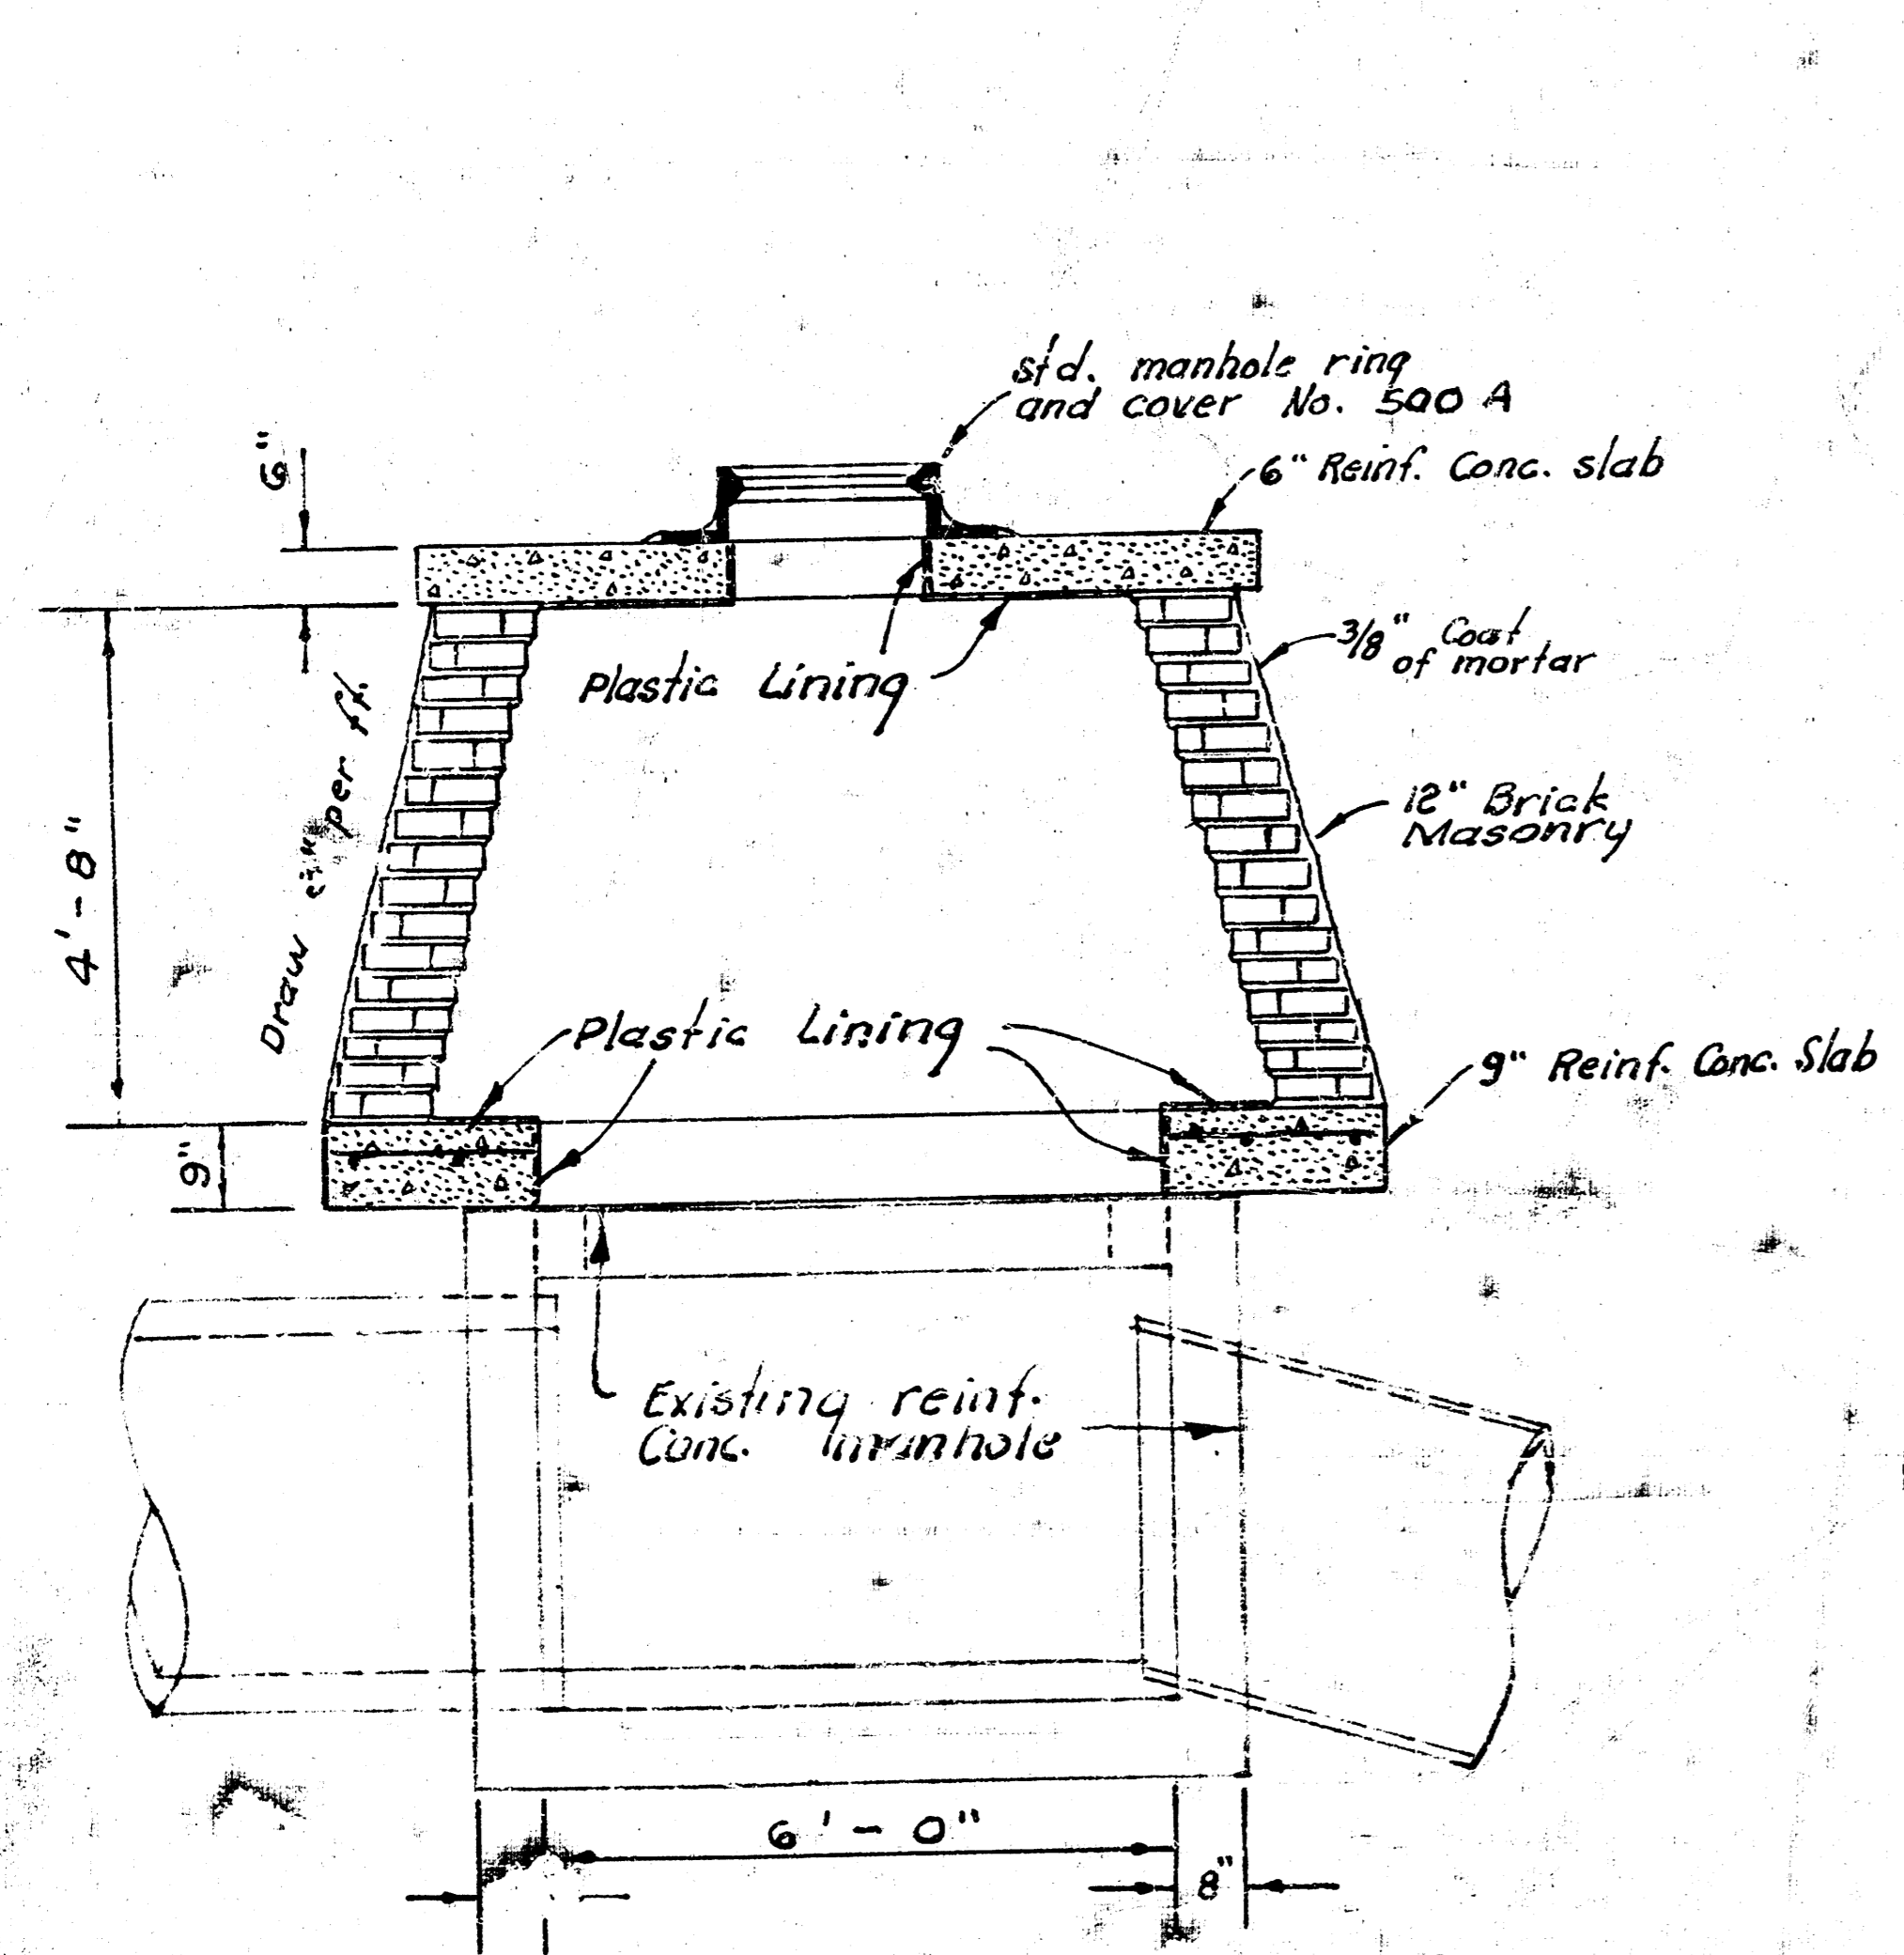 std. manhole ring
and cover No. 500 A
6" Reinf. Conc. slab
6"
3/8" Coat
of mortar
Plastic Lining
12" Brick
Masonry
Draw per ft.
4'-8"
Plastic Lining
9" Reinf. Conc. Slab
9"
Existing reinf.
Conc. manhole
6'-0"
8"